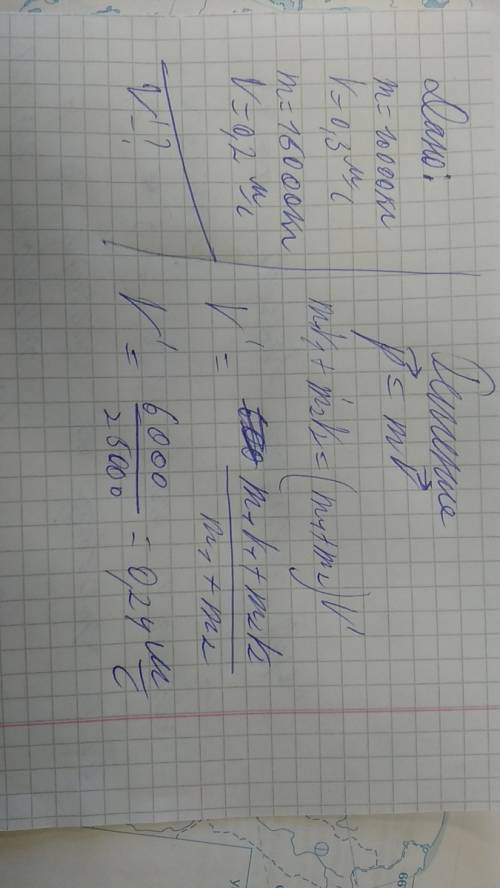 Дано:
m = 10000 кг
V = 0,3 м/с
m = 15000 кг
V = 0,2 м/с
V' - ?
Решение
p⃗ = mV⃗
m₁V₁ + m₂V₂ = (m₁ + m₂)V'
V' = (m₁V₁ + m₂V₂)/(m₁ + m₂)
V' = 6000/25000 = 0,24 м/с